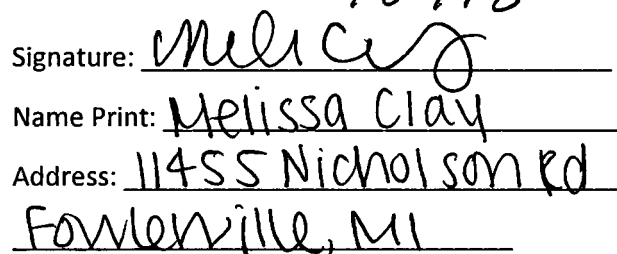 Signature:
Name Print: Melissa Clay
Address: 11455 Nicholson Rd
Fowlerville, MI